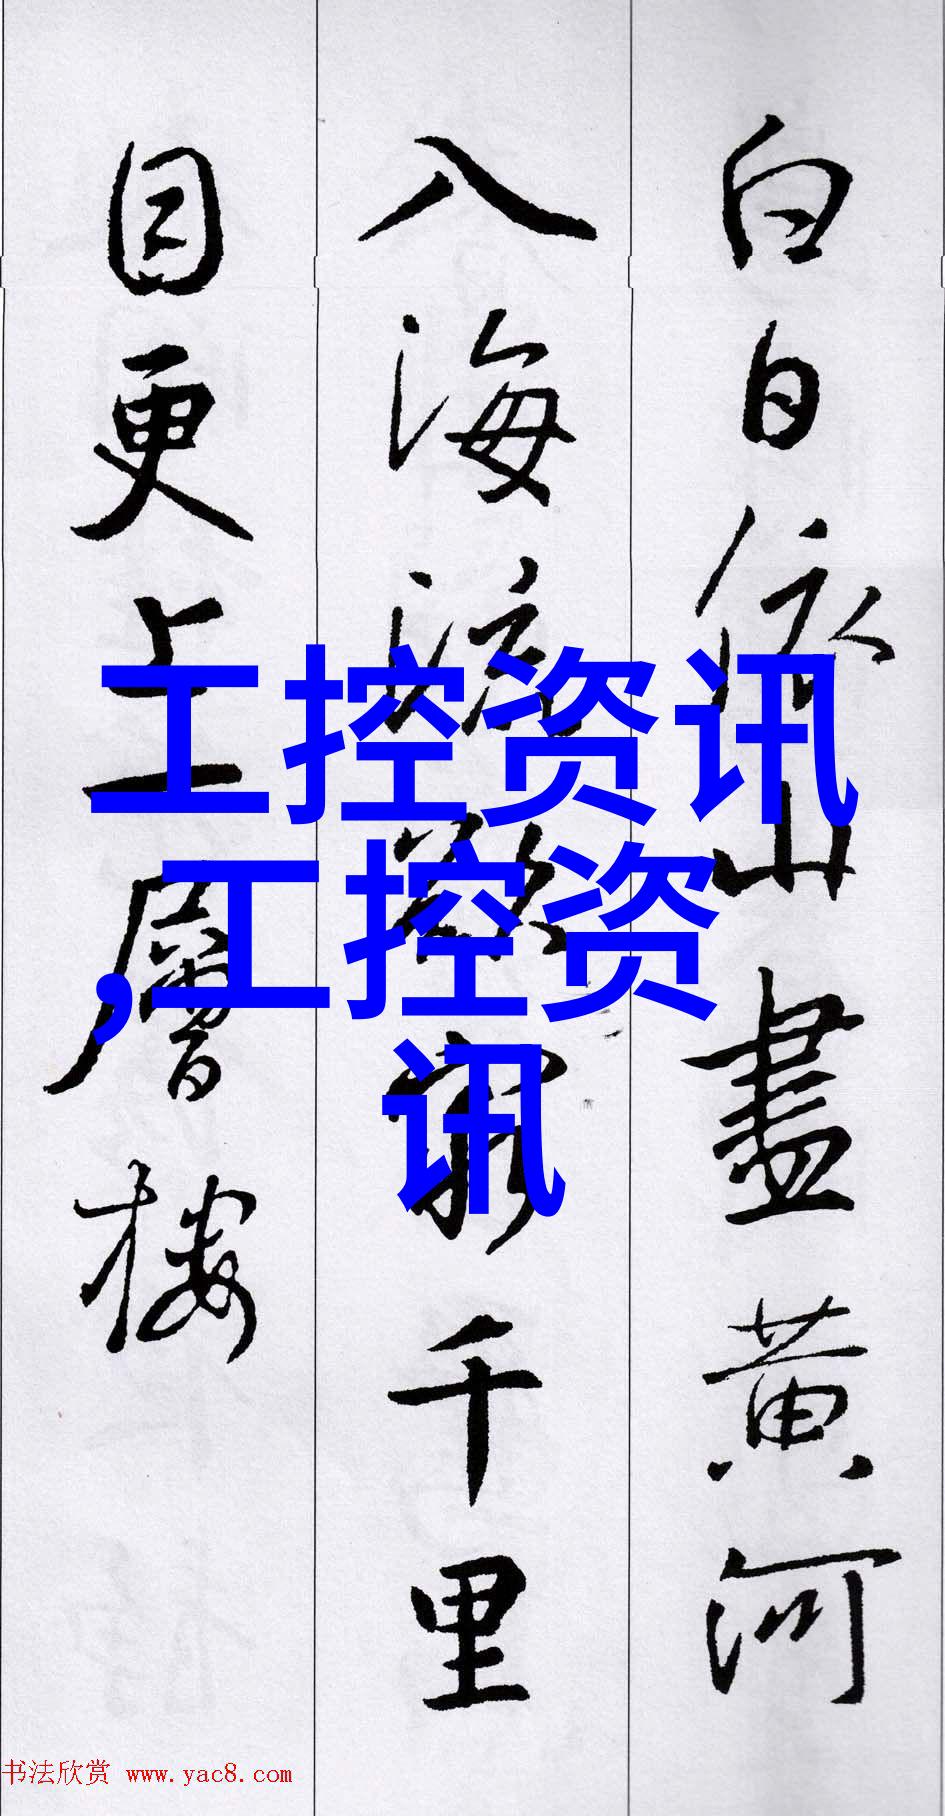 白日依山盡黄河
入海流欲窮千里
目更上層樓
工控资讯
,工控资
讯
书法欣赏 www.yac8.com